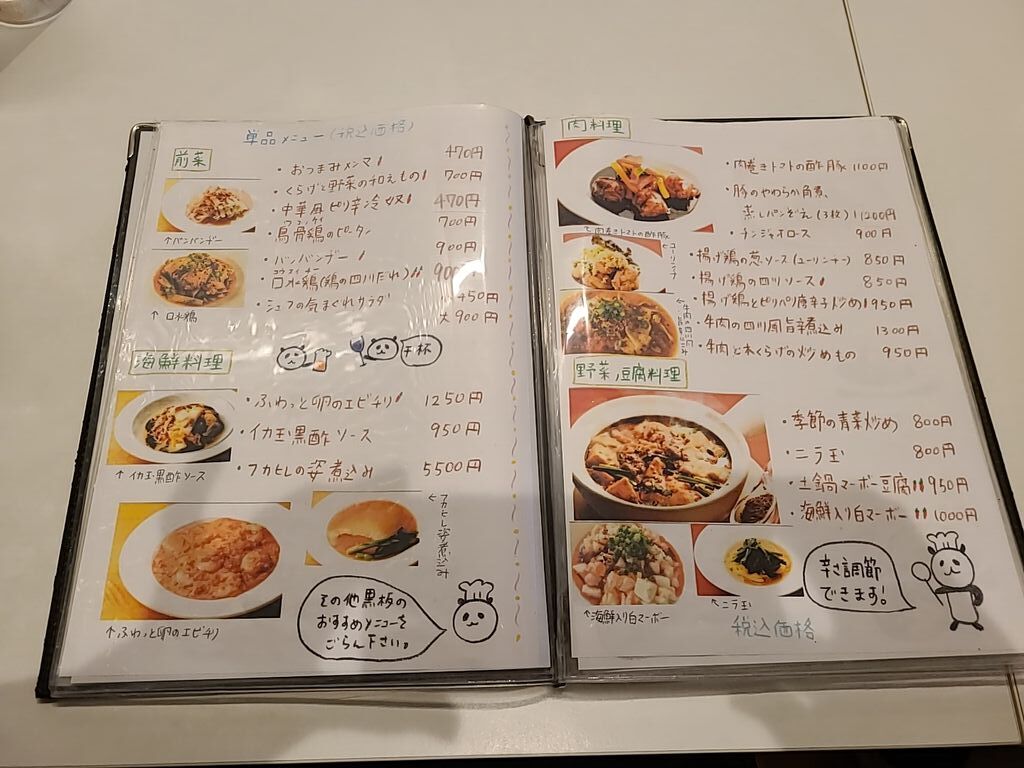 単品メニュー(税込価格)
前菜
・おつまみメンマ 470円
・くらげと野菜の和えもの 700円
・中華風ピリ辛冷奴 470円
・烏骨鶏のピータン 700円
・バンバンジー 900円
・口水鶏(鶏の四川だれ) 900円
・シェフの気まぐれサラダ
450円
大900円
↑バンバンジー
↑口水鶏
海鮮料理
干杯
・ふわっと卵のエビチリ 1250円
・イカ玉黒酢ソース 950円
・フカヒレの姿煮込み 5500円
↑イカ玉黒酢ソース
←フカヒレ姿煮込み
↑ふわっと卵のエビチリ
その他黒板の
おすすめメニューを
ごらん下さい。
肉料理
・肉巻きトマトの酢豚 1100円
・豚のやわらか角煮
蒸しパンぞえ(3枚) 1200円
・チンジャオロース 900円
・揚げ鶏の葱ソース(ユーリンチー) 850円
・揚げ鶏の四川ソース 850円
・揚げ鶏とピリパリ唐辛子炒め 950円
・牛肉の四川風旨辛煮込み 1300円
・牛肉と木くらげの炒めもの 950円
↑肉巻きトマトの酢豚
←ユーリンチー
←牛肉の四川風旨辛煮込み
野菜、豆腐料理
・季節の青菜炒め 800円
・ニラ玉 800円
・土鍋マーボー豆腐 950円
・海鮮入り白マーボー 1000円
↑海鮮入り白マーボー
↖ニラ玉
辛さ調節
できます!
税込価格